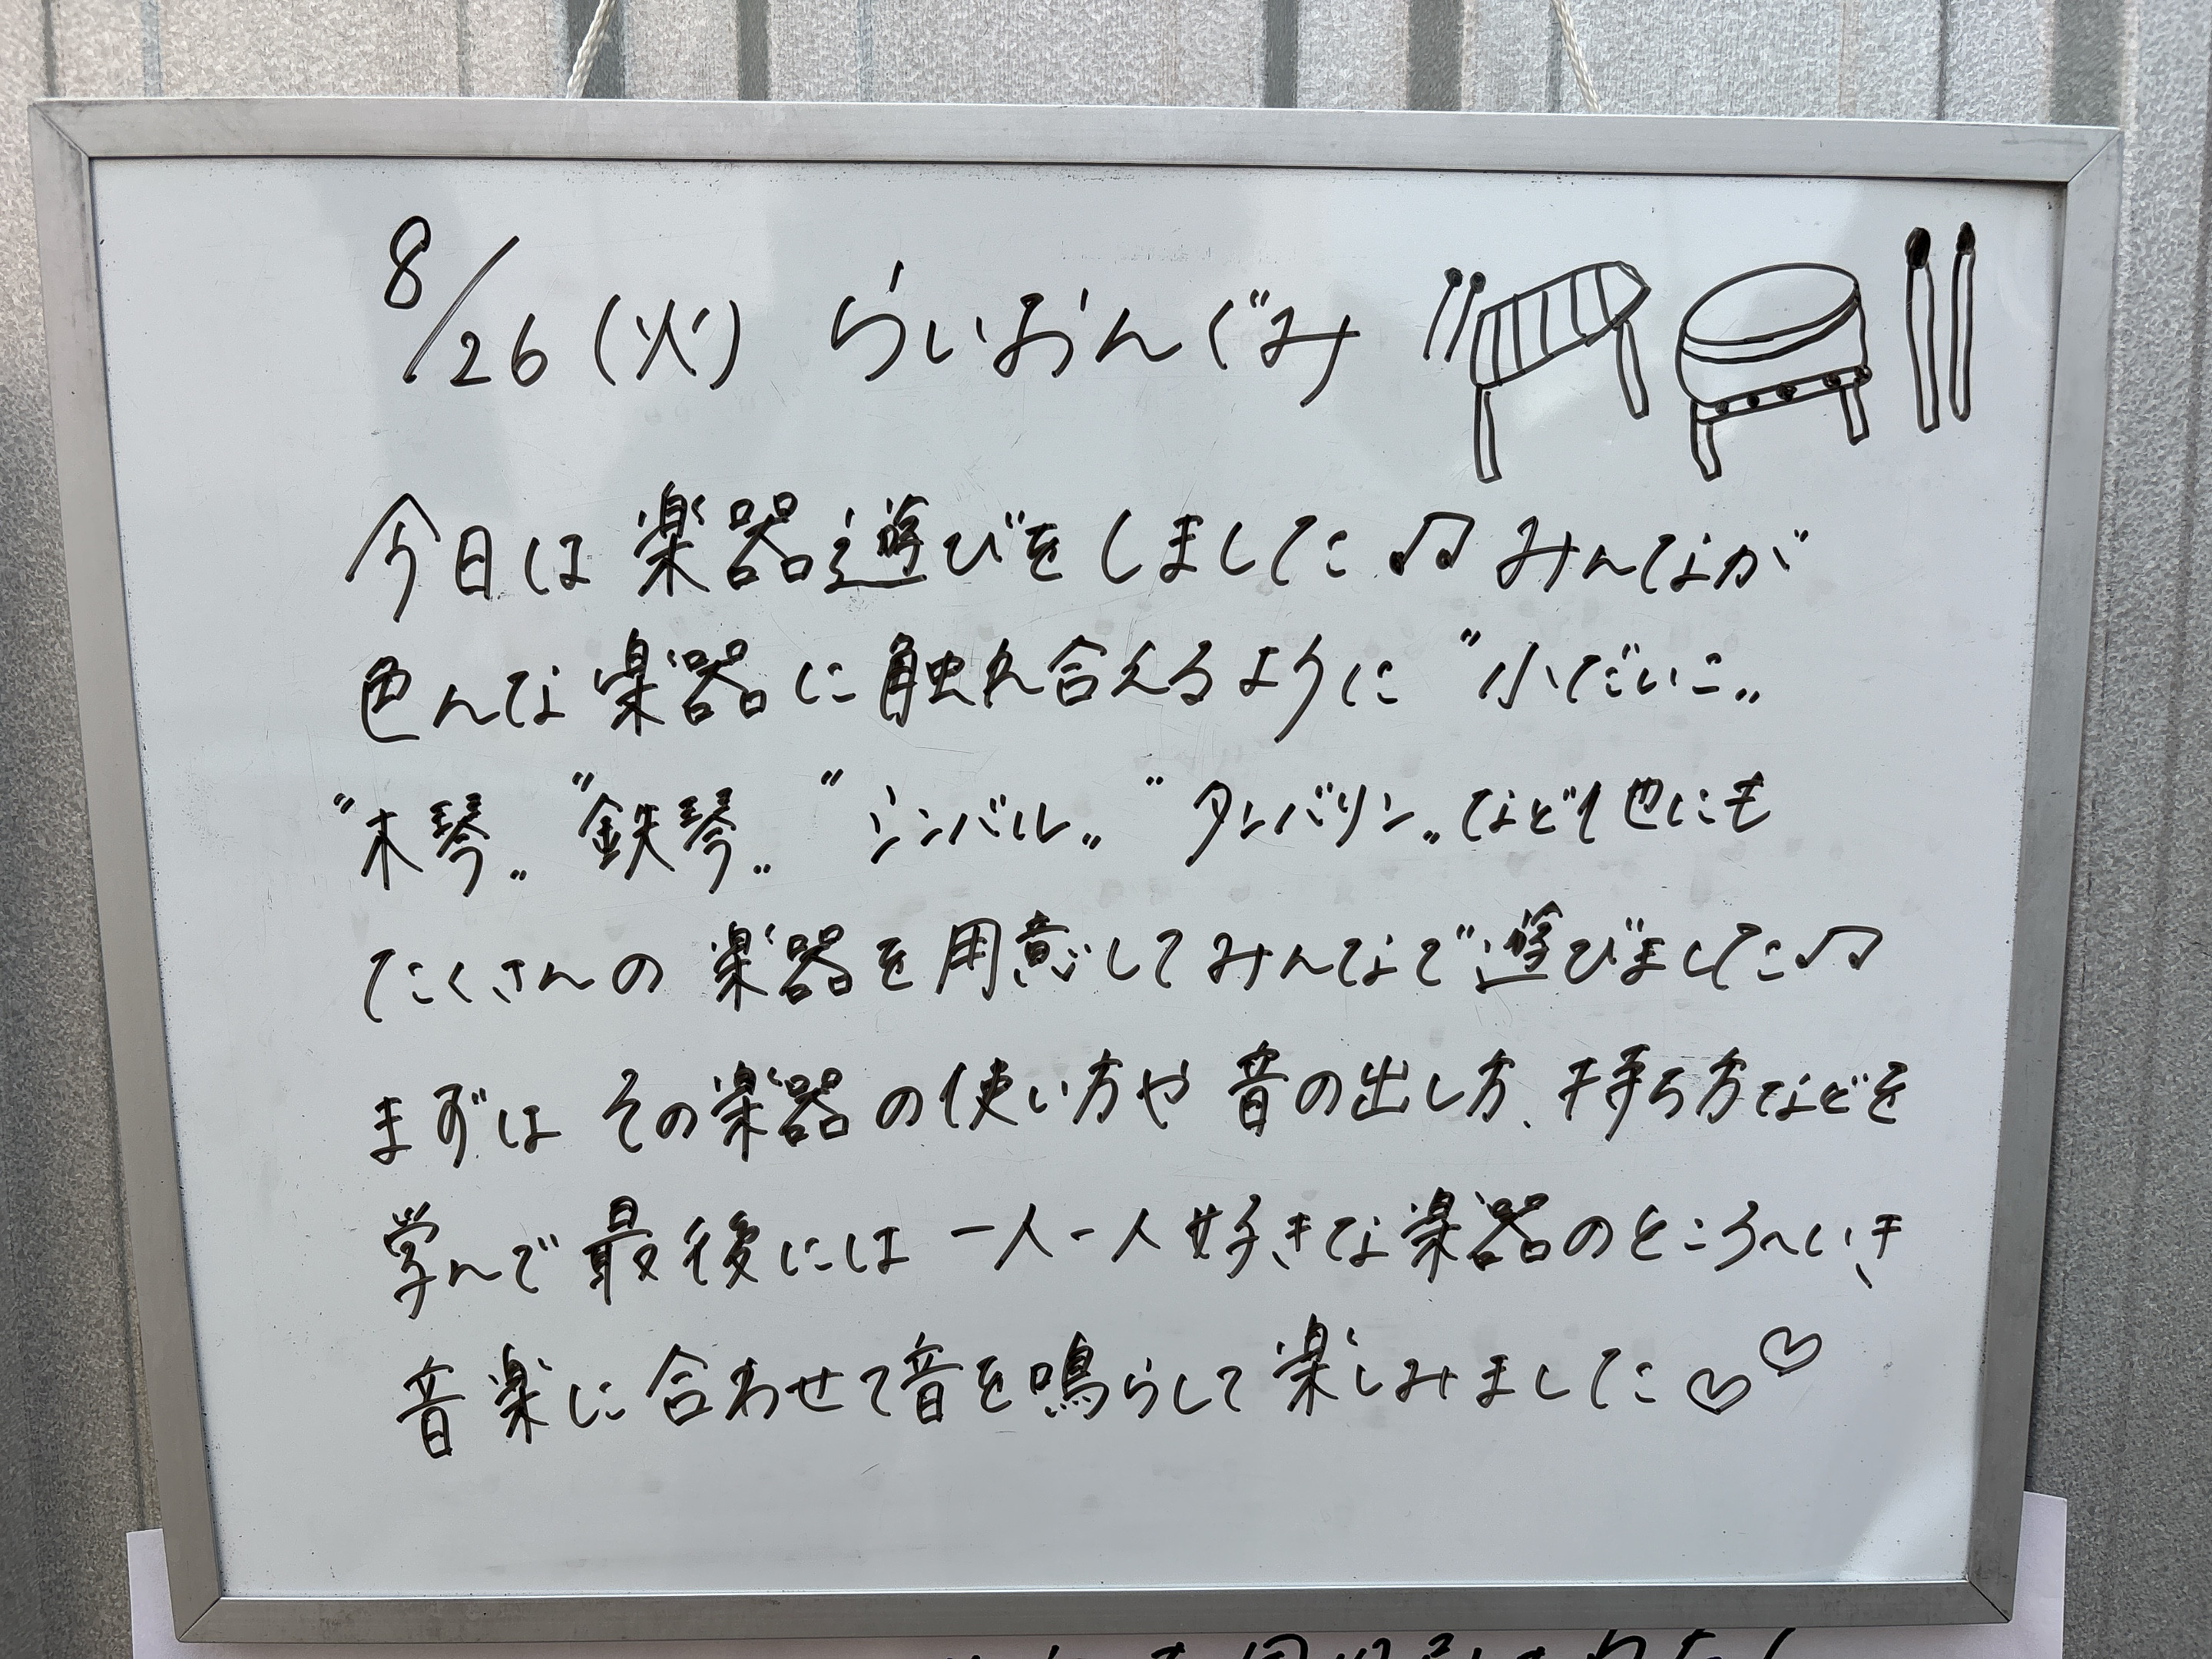 8/26(火) らいおんぐみ
今日は楽器遊びをしました♫ みんなが
色んな楽器に触れ合えるように〝小だいこ〟
〝木琴〟〝鉄琴〟〝シンバル〟〝タンバリン〟など他にも
たくさんの楽器を用意してみんなで遊びました♫
まずは その楽器の使い方や音の出し方、持ち方などを
学んで最後には一人一人好きな楽器のところへいき
音楽に合わせて音を鳴らして楽しみました♡♡